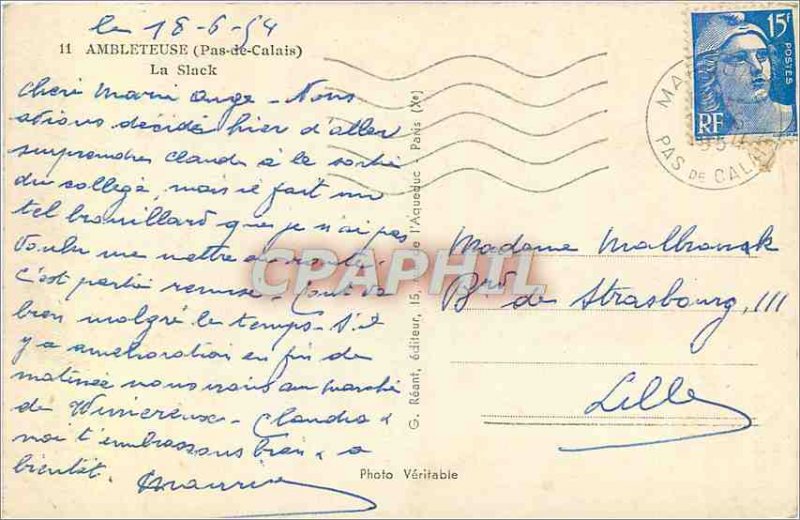 le 18-6-54
11 AMBLETEUSE (Pas-de-Calais)
La Slack
Cheri Marie Ange - Nous
étions décidé hier d'aller
surprendre Claude à la sortie
du collège, mais il fait un
tel brouillard que je n'ai pas
voulu me mettre en route.
C'est partie remise - Tout va
bien malgré le temps - S'il
y a amélioration en fin de
matinée nous irons au marché
de Wimereux - Claudra &
moi t'embrassons bien & a
bientôt. Maurice
G. Réant, éditeur, 15, de l'Aqueduc - Paris (Xe)
Photo Véritable
CPAPHIL
15F
POSTES
RF
MA
PAS DE CALAIS
Madame
Brd de Strasbourg, 111
Lille